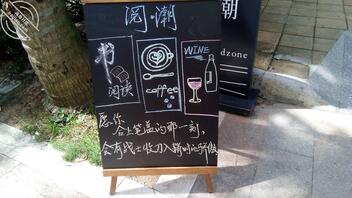 阅·潮
书
阅读
coffee
WINE
愿你
合上笔盖的那一刻,
会有战士收刀入鞘时的骄傲
潮
dzone